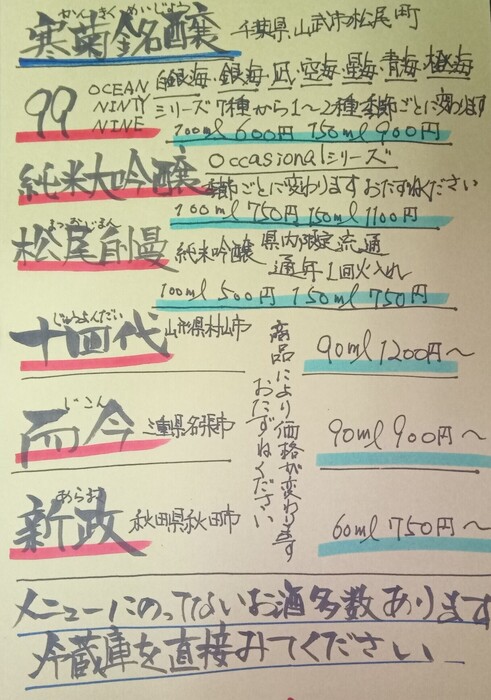 かんきくめいじょう
寒菊銘醸 千葉県山武市松尾町
99 OCEAN NINTY NINE
白銀海・銀海・凪・空海・星海・青海・極海
シリーズ7種から1~2種季節ごとに変わります
100ml 600円 150ml 900円
純米大吟醸 Occasionalシリーズ
季節ごとに変わります おたずねください
100ml 750円 150ml 1100円
まつおじまん
松尾自慢 純米吟醸 県内限定流通
通年1回火入れ
100ml 500円 150ml 750円
じゅうよんだい
十四代 山形県村山市 90ml 1200円~
じこん
而今 三重県名張市 90ml 900円~
あらまさ
新政 秋田県秋田市 60ml 750円~
商品により価格が変わります
おたずねください
メニューにのってないお酒多数あります
冷蔵庫を直接みてください